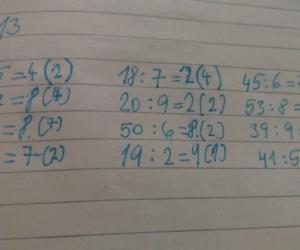 13
5=4(2) 18:7=2(4) 45:6=
=8(4) 20:9=2(2) 53:8=
=8(7) 50:6=8(2) 39:9
=7(2) 19:2=9(1) 41:5